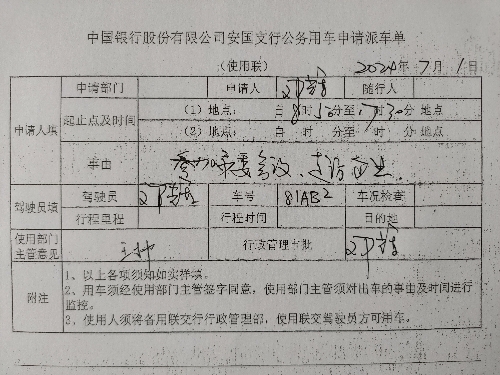 中国银行股份有限公司安国支行公务用车申请派车单
（使用联） 2024年 7月 1日
申请人填 申请部门 申请人 随行人
起止点及时间 （1）地点： 自 8时50分至17时30分 地点
（2）地点： 自 时 分至 时 分 地点
事由 参加 会议、走访企业
驾驶员填 驾驶员 车号 81AB2 车况检查
行程里程 行程时间 目的地
使用部门主管意见 行政管理审批
附注 1、以上各项须知如实详填。
2、用车须经使用部门主管签字同意，使用部门主管须对出车的事由及时间进行
监控。
3、使用人须将各用联交行行政管理部，使用联交驾驶员方可用车。